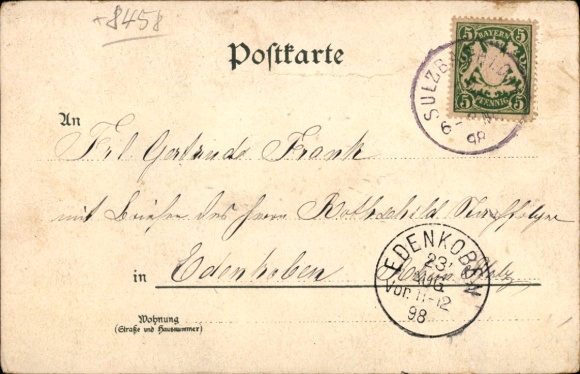 +8458
Postkarte
5 BAYERN 5
5 PFENNIG 5
SULZB
6
98
An
Frl. Gertrude Frank
mit Briefen des Herrn Rothschild Nachfolger
EDENKOBEN
23.
AUG
Vor. 11-12
98
in Edenkoben Pfalz
Wohnung
(Straße und Hausnummer)